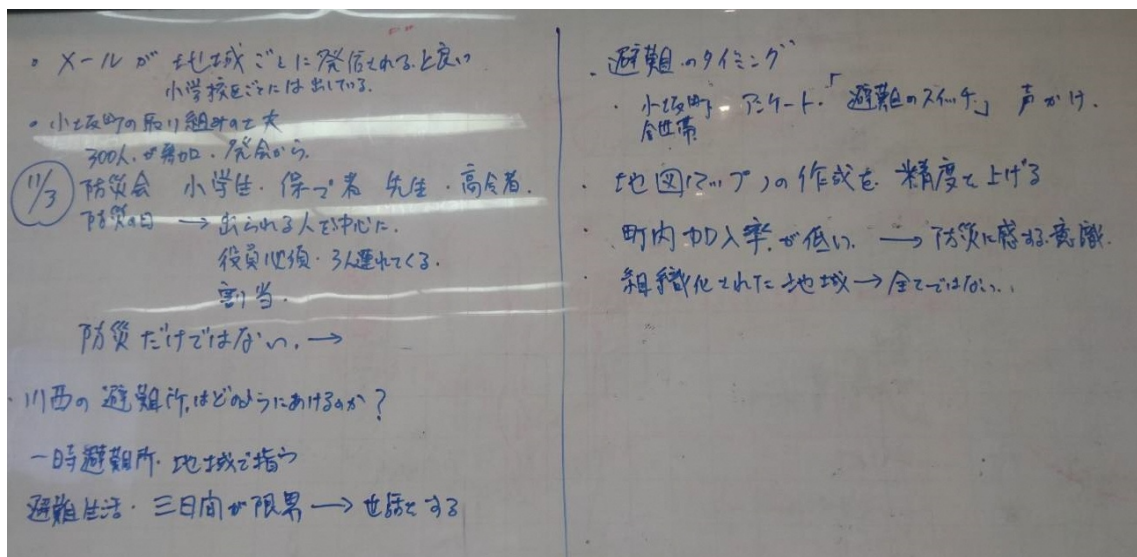 ・メールが地域ごとに発信されると良い
小学校区ごとには出している.
・小坂町の取り組みの工夫
300人.が参加.発会から.
11/3 防災会 小学生・保ゴ者 先生・高令者.
防災の日 → 出られる人で中心に.
役員必須・3人連れてくる.
割当.
防災だけではない. →
・川西の避難所.はどのようにあけるのか?
一時避難所・地域で指
避難生活・三日間が限界 → 世話をする
・避難のタイミング
・小坂町 アンケート.「避難のスイッチ」 声かけ.
全世帯
・地図(マップ)の作成を 精度を上げる
・町内加入率.が低い. → 防災に感する意識.
・組織化された地域 → 全てではない..